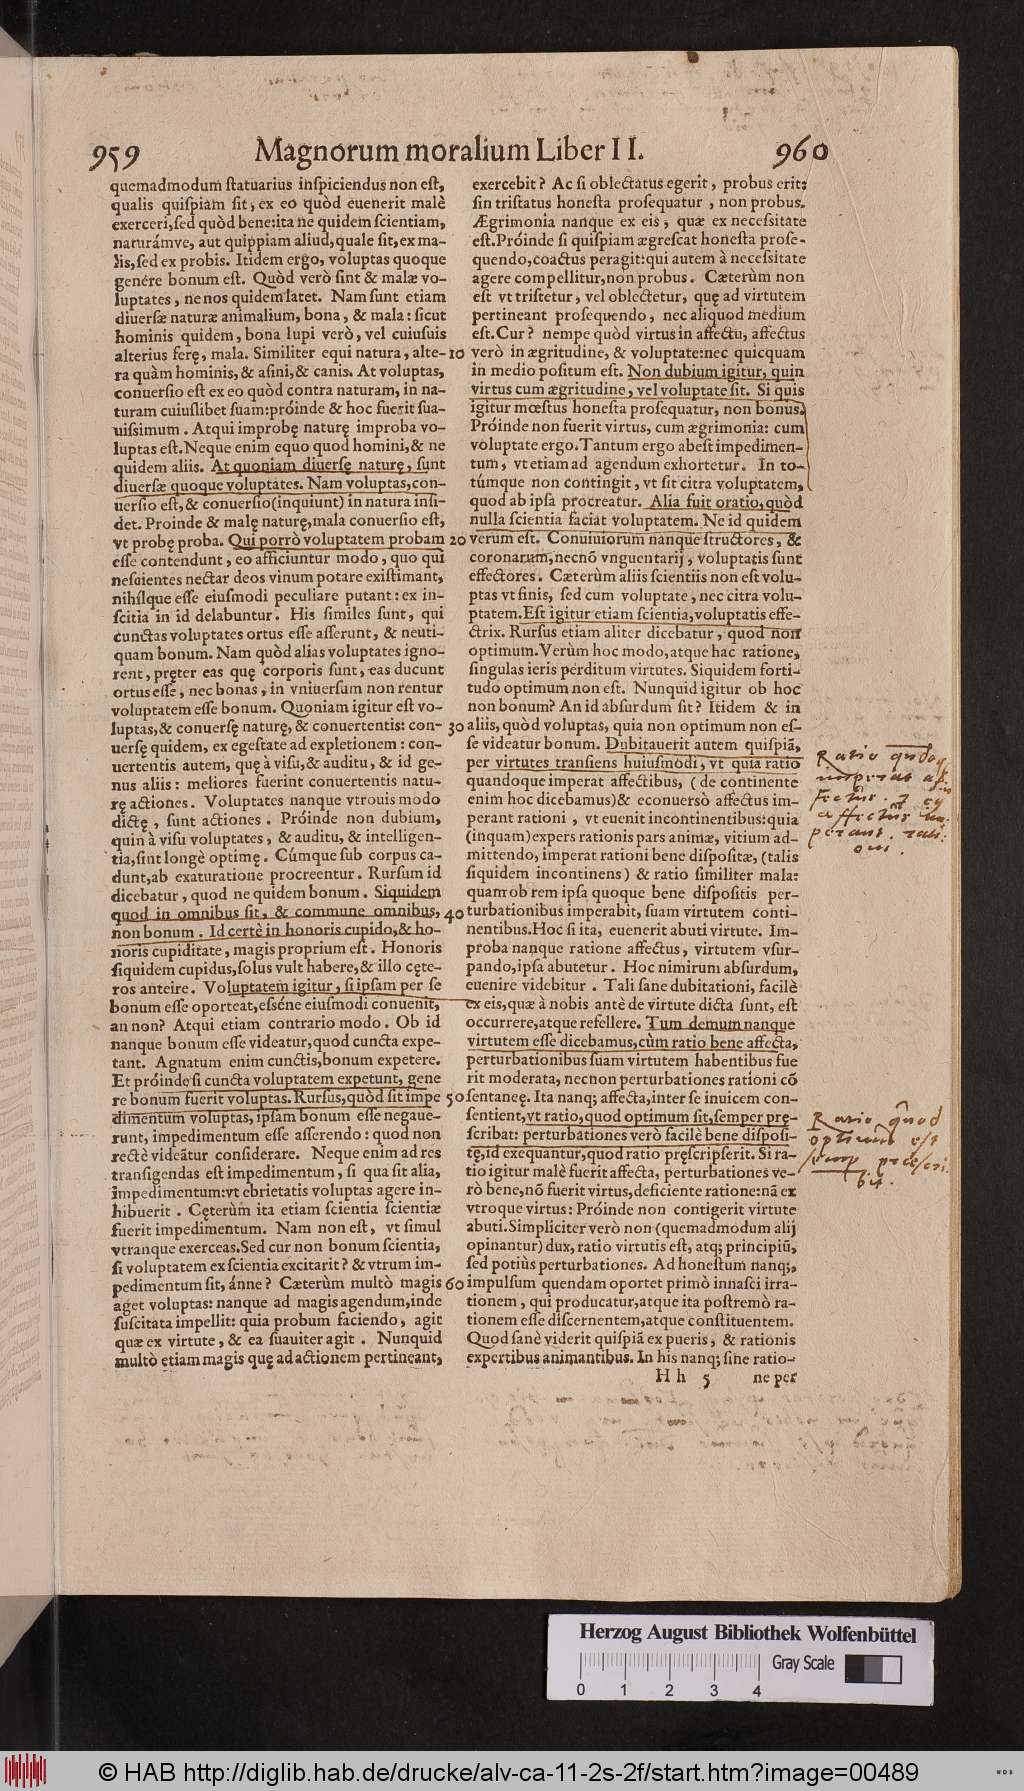 959 Magnorum moralium Liber II. 960
quemadmodum ſtatuarius inſpiciendus non eſt,
qualis quiſpiam ſit, ex eo quòd euenerit malè
exerceri, ſed quòd bene: ita ne quidem ſcientiam,
naturámve, aut quippiam aliud, quale ſit, ex ma-
lis, ſed ex probis. Itidem ergo, voluptas quoque
genére bonum eſt. Quòd verò ſint & malæ vo-
luptates, ne nos quidem latet. Nam ſunt etiam
diuerſæ naturæ animalium, bona, & mala: ſicut
hominis quidem, bona lupi verò, vel cuiuſuis
alterius ferę, mala. Similiter equi natura, alte-
ra quàm hominis, & aſini, & canis. At voluptas,
conuerſio eſt ex eo quòd contra naturam, in na-
turam cuiuſlibet ſuam: próinde & hoc fuerit ſua-
uiſſimum. Atqui improbę naturę improba vo-
luptas eſt. Neque enim equo quod homini, & ne
quidem aliis. At quoniam diuerſę naturę, ſunt
diuerſæ quoque voluptates. Nam voluptas, con-
uerſio eſt, & conuerſio (inquiunt) in natura inſi-
det. Proinde & malę naturę, mala conuerſio eſt,
vt probę proba. Qui porrò voluptatem probam
eſſe contendunt, eo afficiuntur modo, quo qui
neſcientes nectar deos vinum potare exiſtimant,
nihilque eſſe eiuſmodi peculiare putant: ex in-
ſcitia in id delabuntur. His ſimiles ſunt, qui
cunctas voluptates ortus eſſe aſſerunt, & neuti-
quam bonum. Nam quòd alias voluptates igno-
rent, pręter eas quę corporis ſunt, eas ducunt
ortus eſſe, nec bonas, in vniuerſum non rentur
voluptatem eſſe bonum. Quoniam igitur eſt vo-
luptas, & conuerſę naturę, & conuertentis: con-
uerſę quidem, ex egeſtate ad expletionem: con-
uertentis autem, quę à viſu, & auditu, & id ge-
nus aliis: meliores fuerint conuertentis natu-
rę actiones. Voluptates nanque vtrouis modo
dictę, ſunt actiones. Próinde non dubium,
quin à viſu voluptates, & auditu, & intelligen-
tia, ſint longè optimę. Cúmque ſub corpus ca-
dunt, ab exaturatione procreentur. Rurſum id
dicebatur, quod ne quidem bonum. Siquidem
quod in omnibus ſit, & commune omnibus,
non bonum. Id certè in honoris cupido, & ho-
noris cupiditate, magis proprium eſt. Honoris
ſiquidem cupidus, ſolus vult habere, & illo cęte-
ros anteire. Voluptatem igitur, ſi ipſam per ſe
bonum eſſe oporteat, eſséne eiuſmodi conuenit,
an non? Atqui etiam contrario modo. Ob id
nanque bonum eſſe videatur, quod cuncta expe-
tant. Agnatum enim cunctis, bonum expetere.
Et próinde ſi cuncta voluptatem expetunt, gene
re bonum fuerit voluptas. Rurſus, quòd ſit impe
dimentum voluptas, ipſam bonum eſſe negaue-
runt, impedimentum eſſe aſſerendo: quod non
rectè videātur conſiderare. Neque enim ad res
tranſigendas eſt impedimentum, ſi qua ſit alia,
impedimentum: vt ebrietatis voluptas agere in-
hibuerit. Cęterùm ita etiam ſcientia ſcientiæ
fuerit impedimentum. Nam non eſt, vt ſimul
vtranque exerceas. Sed cur non bonum ſcientia,
ſi voluptatem ex ſcientia excitarit? & vtrum im-
pedimentum ſit, ánne? Cæterùm multò magis
aget voluptas: nanque ad magis agendum, inde
ſuſcitata impellit: quia probum faciendo, agit
quæ ex virtute, & ea ſuauiter agit. Nunquid
multò etiam magis quę ad actionem pertineant,
10
20
30
40
50
60
exercebit? Ac ſi oblectatus egerit, probus erit:
ſin triſtatus honeſta proſequatur, non probus.
Ægrimonia nanque ex eis, quæ ex neceſsitate
eſt. Próinde ſi quiſpiam ægreſcat honeſta proſe-
quendo, coactus peragit: qui autem à neceſsitate
agere compellitur, non probus. Cæterùm non
eſt vt triſtetur, vel oblectetur, quę ad virtutem
pertineant proſequendo, nec aliquod medium
eſt. Cur? nempe quòd virtus in affectu, affectus
verò in ægritudine, & voluptate: nec quicquam
in medio poſitum eſt. Non dubium igitur, quin
virtus cum ægritudine, vel voluptate ſit. Si quis
igitur mœſtus honeſta proſequatur, non bonus.
Próinde non fuerit virtus, cum ægrimonia: cum
voluptate ergo. Tantum ergo abeſt impedimen-
tum, vt etiam ad agendum exhortetur. In to-
túmque non contingit, vt ſit citra voluptatem,
quod ab ipſa procreatur. Alia fuit oratio, quòd
nulla ſcientia faciat voluptatem. Ne id quidem
verum eſt. Conuiuiorum nanque ſtructores, &
coronarum, necnō vnguentarij, voluptatis ſunt
effectores. Cæterùm aliis ſcientiis non eſt volu-
ptas vt finis, ſed cum voluptate, nec citra volu-
ptatem. Eſt igitur etiam ſcientia, voluptatis effe-
ctrix. Rurſus etiam aliter dicebatur, quod non
optimum. Verùm hoc modo, atque hac ratione,
ſingulas ieris perditum virtutes. Siquidem forti-
tudo optimum non eſt. Nunquid igitur ob hoc
non bonum? An id abſurdum ſit? Itidem & in
aliis, quòd voluptas, quia non optimum non eſ-
ſe videatur bonum. Dubitauerit autem quiſpiā,
per virtutes tranſiens huiuſmodi, vt quia ratio
quandoque imperat affectibus, (de continente
enim hoc dicebamus) & econuersò affectus im-
perant rationi, vt euenit incontinentibus: quia
(inquam) expers rationis pars animæ, vitium ad-
mittendo, imperat rationi bene diſpoſitæ, (talis
ſiquidem incontinens) & ratio ſimiliter mala:
quamob rem ipſa quoque bene diſpoſitis per-
turbationibus imperabit, ſuam virtutem conti-
nentibus. Hoc ſi ita, euenerit abuti virtute. Im-
proba nanque ratione affectus, virtutem vſur-
pando, ipſa abutetur. Hoc nimirum abſurdum,
euenire videbitur. Tali ſane dubitationi, facilè
ex eis, quæ à nobis antè de virtute dicta ſunt, eſt
occurrere, atque refellere. Tum demum nanque
virtutem eſſe dicebamus, cùm ratio bene affecta,
perturbationibus ſuam virtutem habentibus fue
rit moderata, necnon perturbationes rationi cō
ſentaneę. Ita nanq; affecta, inter ſe inuicem con-
ſentient, vt ratio, quod optimum ſit, ſemper prę-
ſcribat: perturbationes verò facilè bene diſpoſi-
tę, id exequantur, quod ratio pręſcripſerit. Si ra-
tio igitur malè fuerit affecta, perturbationes ve-
rò bene, nō fuerit virtus, deficiente ratione: nā ex
vtroque virtus: Próinde non contigerit virtute
abuti. Simpliciter verò non (quemadmodum alij
opinantur) dux, ratio virtutis eſt, atq; principiū,
ſed potiùs perturbationes. Ad honeſtum nanq;,
impulſum quendam oportet primò innaſci irra-
tionem, qui producatur, atque ita poſtremò ra-
tionem eſſe diſcernentem, atque conſtituentem.
Quod ſanè viderit quiſpiā ex pueris, & rationis
expertibus animantibus. In his nanq; ſine ratio-
Hh 5 ne per
Ratio quādoq
imperat af-
fectibus
affectus im-
perant rati-
oni.
Ratio quod
optimum est
semp præscri-
bit.
Herzog August Bibliothek Wolfenbüttel
Gray Scale
0 1 2 3 4
© HAB http://diglib.hab.de/drucke/alv-ca-11-2s-2f/start.htm?image=00489